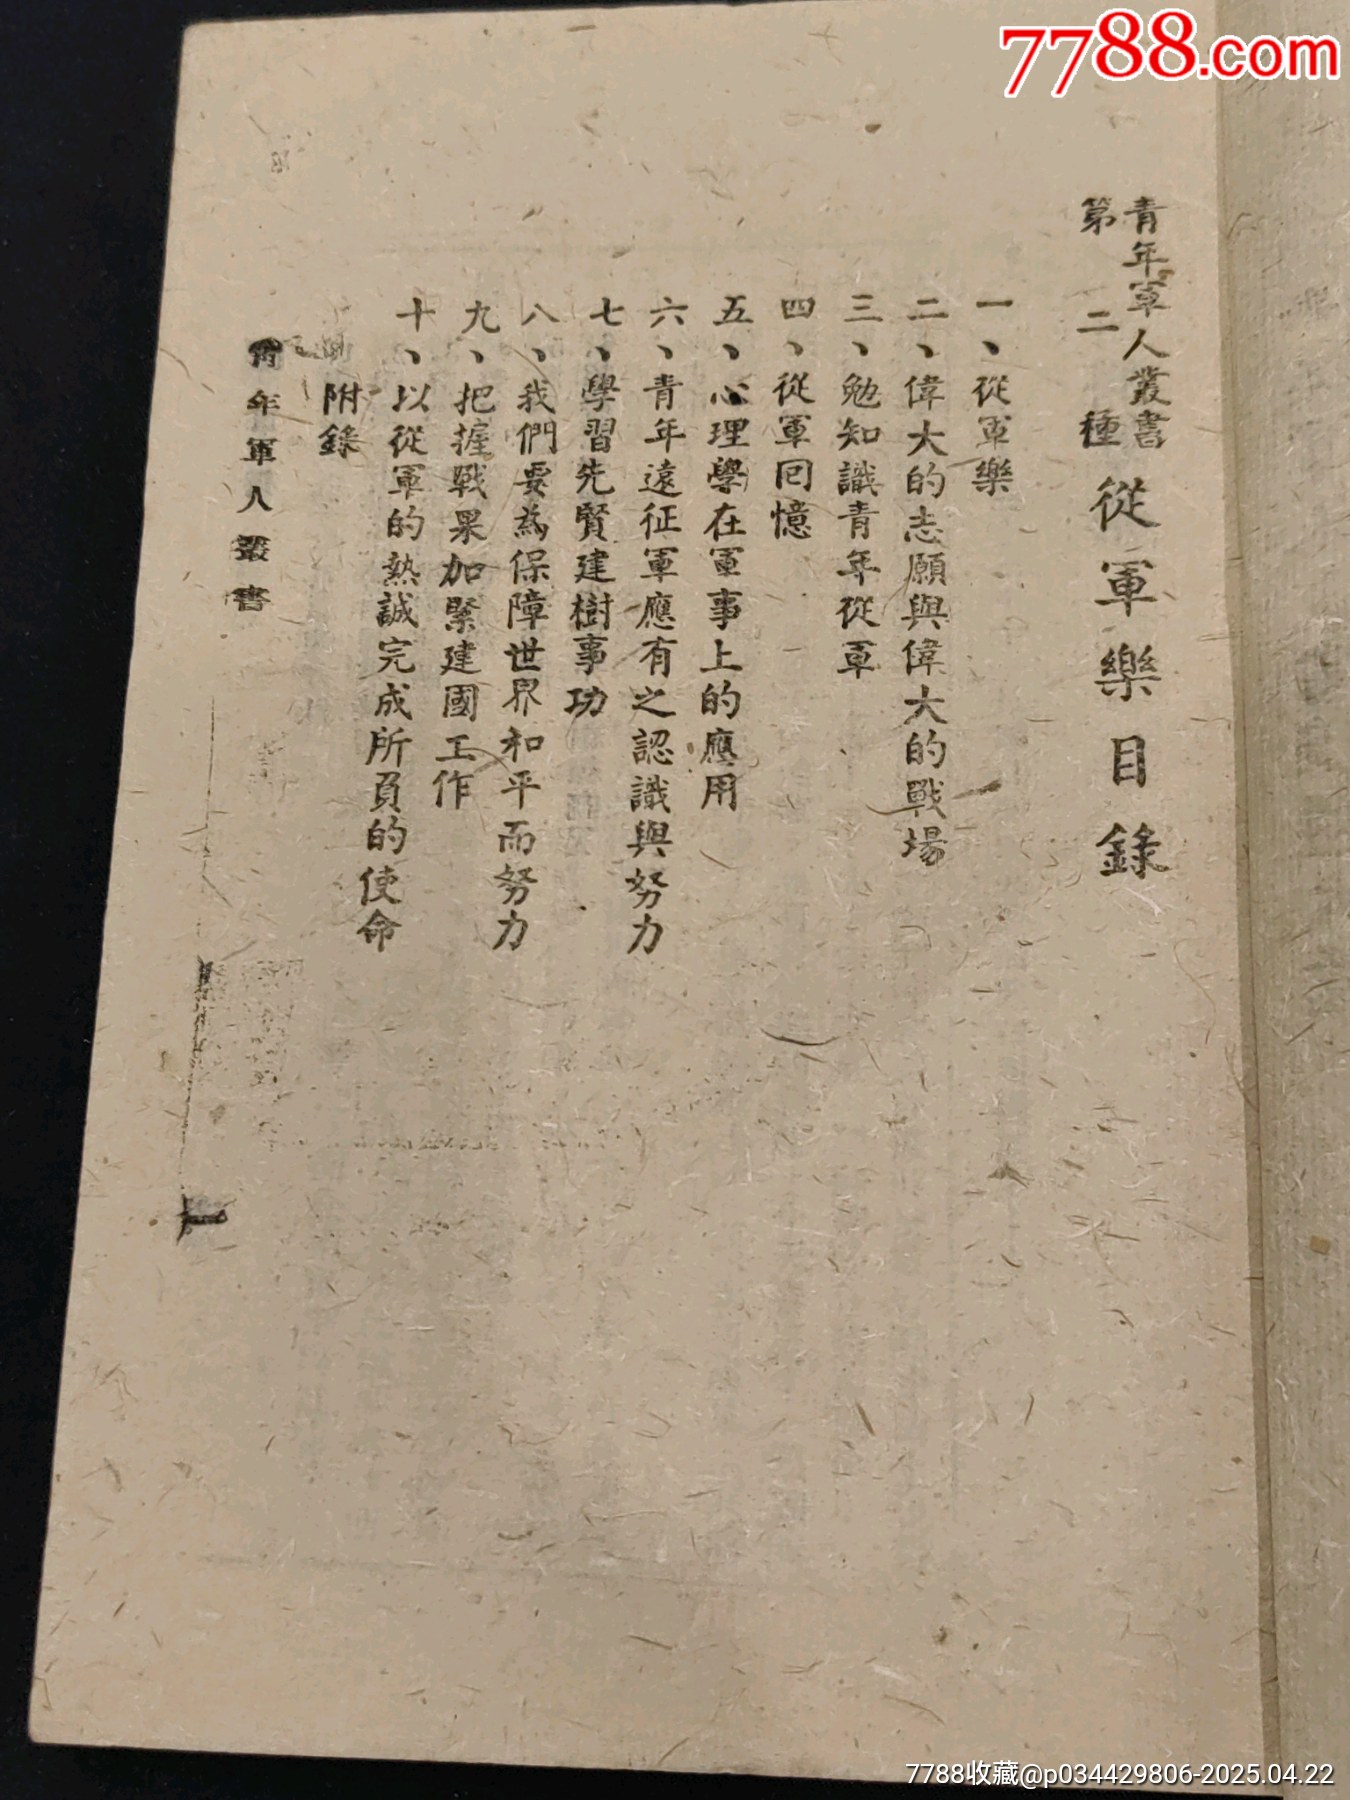 7788.com
青年軍人叢書
第二種
從軍樂目錄
一、從軍樂
二、偉大的志願與偉大的戰場
三、勉知識青年從軍
四、從軍回憶
五、心理學在軍事上的應用
六、青年遠征軍應有之認識與努力
七、學習先賢建樹事功
八、我們要為保障世界和平而努力
九、把握戰果加緊建國工作
十、以從軍的熱誠完成所負的使命
附錄
青年軍人叢書
一
7788收藏@p034429806-2025.04.22